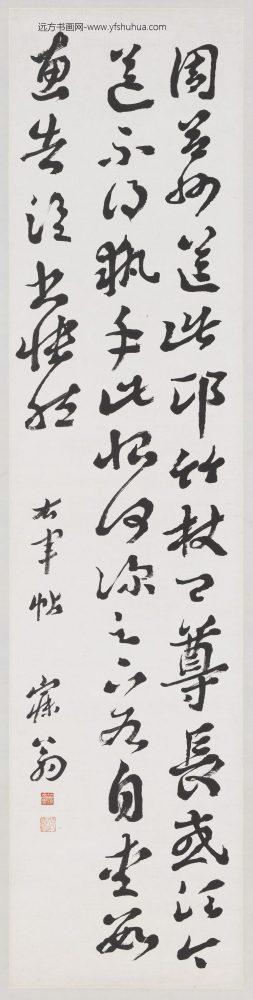 远方书画网-www.yfshuhua.com
周益州送此邛竹杖卿尊長或須今
送不得執手此恨何深足下各自愛數
惠告臨書悵然
右軍帖
寐翁